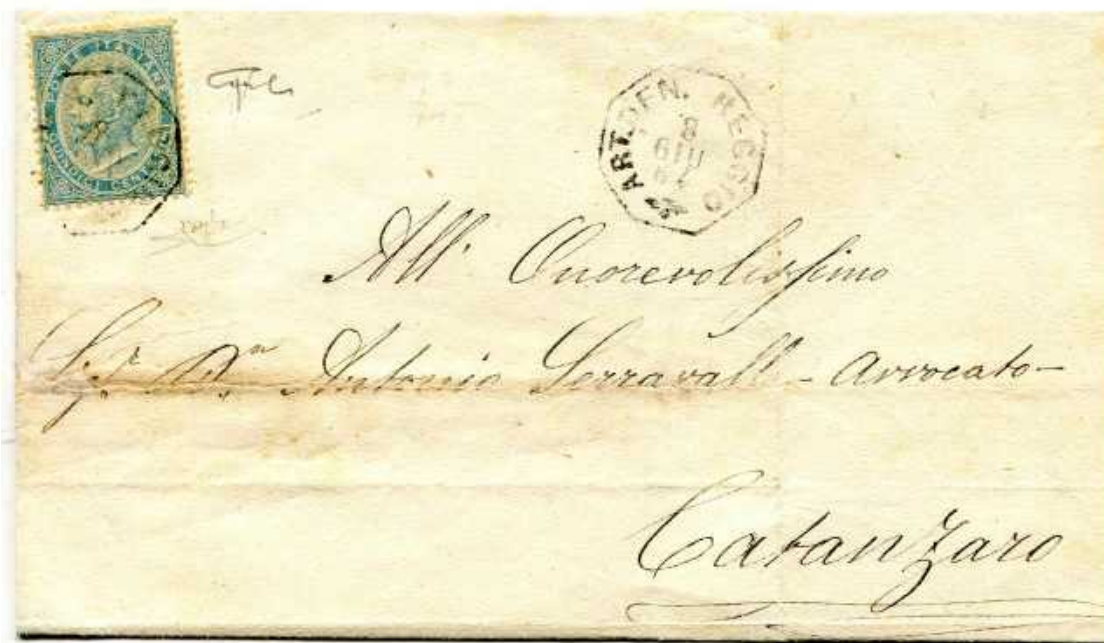 POSTE ITALIANE
QUINDICI CENTESIMI
ART. DEN. REGGIO
8
GIU
All' Onorevolissimo
Sigr. Dn Antonio Serravalle - Avvocato -
Catanzaro